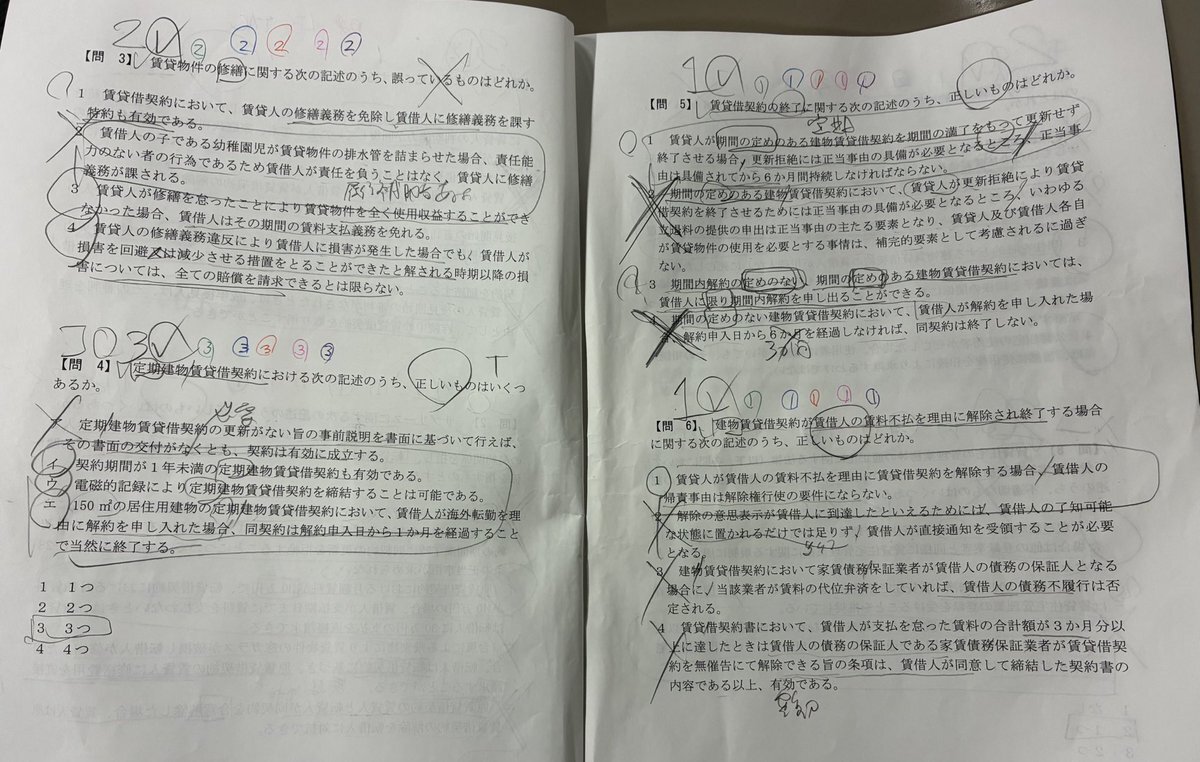 2 1 2 2 2 2 2
【問 3】 賃貸物件の修繕に関する次の記述のうち、誤っているものはどれか。
1 賃貸借契約において、賃貸人の修繕義務を免除し賃借人に修繕義務を課す
特約も有効である。
賃借人の子である幼稚園児が賃貸物件の排水管を詰まらせた場合、責任能
力のない者の行為であるため賃借人が責任を負うことはなく、賃貸人に修繕
義務が課される。
3 賃貸人が修繕を怠ったことにより賃貸物件を全く使用収益することができ
なかった場合、賃借人はその期間の賃料支払義務を免れる。
4 賃貸人の修繕義務違反により賃借人に損害が発生した場合でも、賃借人が
損害を回避又は減少させる措置をとることができたと解される時期以降の損
害については、全ての賠償を請求できるとは限らない。
3 3 3 3 3 3
【問 4】 定期建物賃貸借契約における次の記述のうち、正しいものはいくつ
あるか。
定期建物賃貸借契約の更新がない旨の事前説明を書面に基づいて行えば、
その書面の交付がなくとも、契約は有効に成立する。
イ 契約期間が1年未満の定期建物賃貸借契約も有効である。
ウ 電磁的記録により定期建物賃貸借契約を締結することは可能である。
エ 150㎡の居住用建物の定期建物賃貸借契約において、賃借人が海外転勤を理
由に解約を申し入れた場合、同契約は解約申入日から1か月を経過すること
で当然に終了する。
1 1つ
2 2つ
3 3つ
4 4つ
1
【問 5】 賃貸借契約の終了に関する次の記述のうち、正しいものはどれか。
1 賃貸人が期間の定めのある建物賃貸借契約を期間の満了をもって更新せず
終了させる場合、更新拒絶には正当事由の具備が必要となるところ、正当事
由は具備されてから6か月間持続しなければならない。
2 期間の定めのある建物賃貸借契約において、賃貸人が更新拒絶により賃貸
借契約を終了させるためには正当事由の具備が必要となるところ、いわゆる
立退料の提供の申出は正当事由の主たる要素となり、賃貸人及び賃借人各自
が賃貸物件の使用を必要とする事情は、補完的要素として考慮されるに過ぎ
ない。
3 期間内解約の定めのない、期間の定めのある建物賃貸借契約においては、
賃借人に限り期間内解約を申し出ることができる。
期間の定めのない建物賃貸借契約において、賃借人が解約を申し入れた場
合、解約申入日から6か月を経過しなければ、同契約は終了しない。
3か月
1 1 1 1 1
【問 6】 建物賃貸借契約が賃借人の賃料不払を理由に解除され終了する場合
に関する次の記述のうち、正しいものはどれか。
1 賃貸人が賃借人の賃料不払を理由に賃貸借契約を解除する場合、賃借人の
帰責事由は解除権行使の要件にならない。
2 解除の意思表示が賃借人に到達したといえるためには、賃借人の了知可能
な状態に置かれるだけでは足りず、賃借人が直接通知を受領することが必要
となる。
3 建物賃貸借契約において家賃債務保証業者が賃借人の債務の保証人となる
場合に、当該業者が賃料の代位弁済をしていれば、賃借人の債務不履行は否
定される。
4 賃貸借契約書において、賃借人が支払を怠った賃料の合計額が3か月分以
上に達したときは賃借人の債務の保証人である家賃債務保証業者が賃貸借契
約を無催告にて解除できる旨の条項は、賃借人が同意して締結した契約書の
内容である以上、有効である。